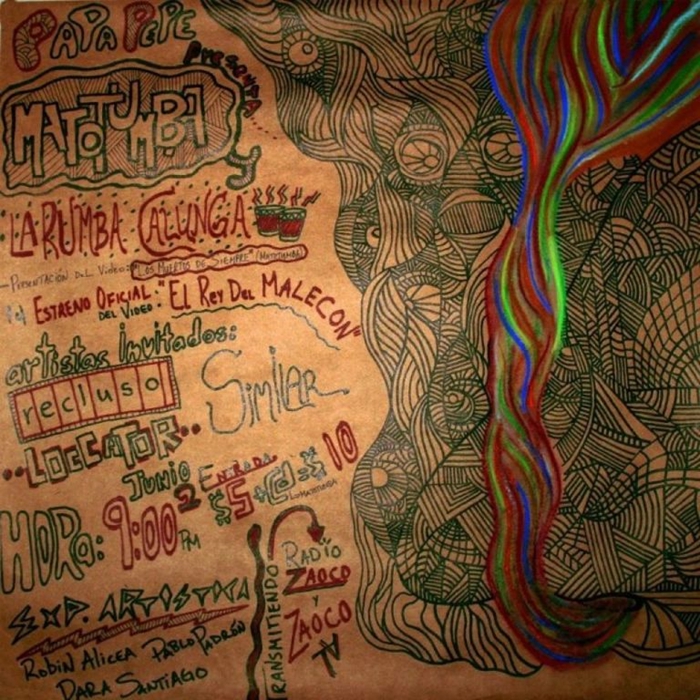 PAPA PEPE
Presenta...
MATOTUMBA
y
LA RUMBA CALUNGA
Presentación Del Video: "Los Muertos de Siempre" (Matotumba)
y el Estreno Oficial: "El Rey Del MALECON"
DEL VIDEO
artistas invitados:
recluso
SimiLer
..LOCCATOR..
JUNIO 2
Entrada
$5 + CD = $10
HORA: 9:00 PM
RADIO
ZAOCO
y
ZAOCO
TV
TRANSMITIENDO
EXP. ARTISTICA
Robin Alicea Pablo Padrón
Dara Santiago